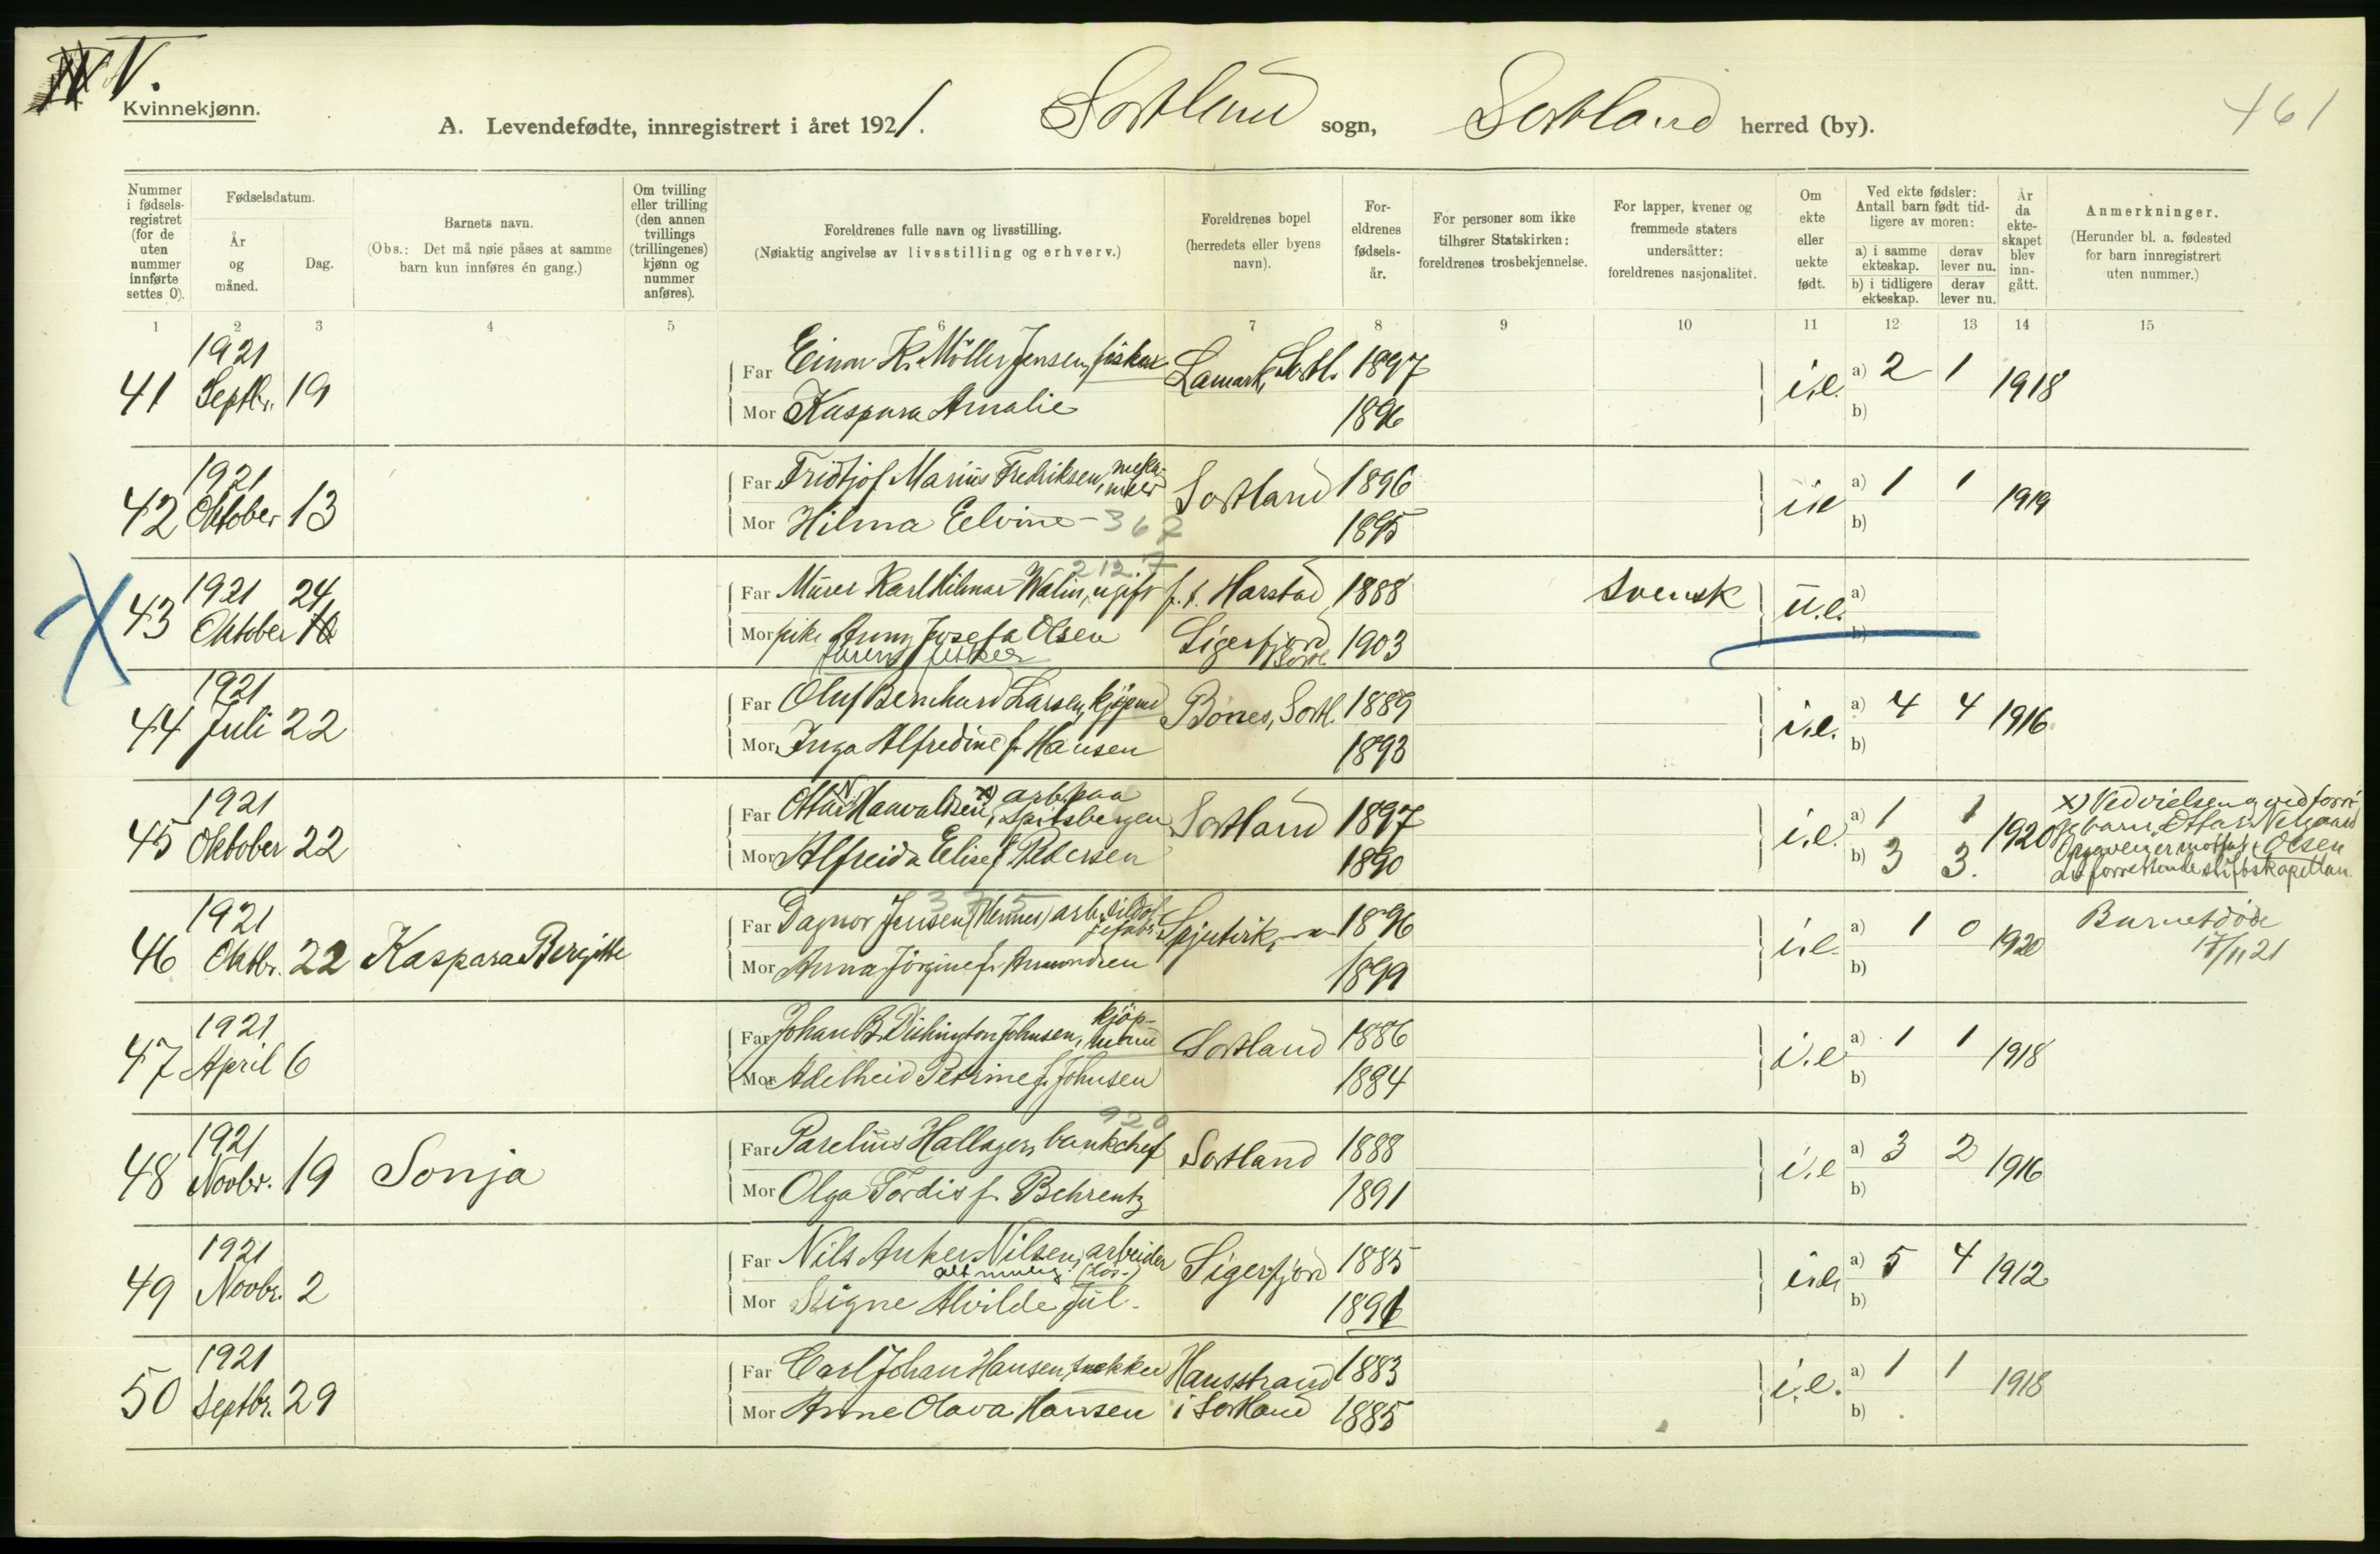 IV V.
Kvinnekjønn.
461
A. Levendefødte, innregistrert i året 1921. Sortland sogn, Sortland herred (by).
Nummer i fødsels-registret (for de uten nummer innførte settes 0).
Fødselsdatum.
År og måned.
Dag.
Barnets navn.
(Obs.: Det må nøie påses at samme barn kun innføres én gang.)
Om tvilling eller trilling (den annen tvillings (trillingenes) kjønn og nummer anføres).
Foreldrenes fulle navn og livsstilling.
(Nøiaktig angivelse av livsstilling og erhverv.)
Foreldrenes bopel (herredets eller byens navn).
For-eldrenes fødsels-år.
For personer som ikke tilhører Statskirken: foreldrenes trosbekjennelse.
For lapper, kvener og fremmede staters undersåtter: foreldrenes nasjonalitet.
Om ekte eller uekte født.
Ved ekte fødsler: Antall barn født tid-ligere av moren:
a) i samme ekteskap.
derav lever nu.
b) i tidligere ekteskap.
derav lever nu.
År da ekte-skapet blev inn-gått.
Anmerkninger.
(Herunder bl. a. fødested for barn innregistrert uten nummer.)
1 2 3 4 5 6 7 8 9 10 11 12 13 14 15
41 1921 Septbr. 19
Far Einar K. Möller Jensen, fisker Lamark, Sortl. 1897 i.e. a) 2 1 1918
Mor Kaspara Amalie 1896 b)
42 1921 Oktober 13
Far Fridtjof Marius Fredriksen, meka-niker Sortland 1896 i.e a) 1 1 1919
Mor Hilma Elvine - 367 1895 b)
212.7
43 1921 Oktober 24 10
Far Murer Karl Hilmar Walin, ugift f. t. Harstad 1888 Svensk u.e. a)
Mor pike Anny Josefa Olsen Sigerfjord Sortl. 1903 b)
farens fisker
44 1921 Juli 22
Far Oluf Bernhard Larsen, kjøpmd Bönes, Sortl. 1889 i.e. a) 4 4 1916
Mor Inga Alfredine f. Hansen 1893 b)
45 1921 Oktober 22
Far Ottar N. Haavaldsen, x) arb. paa Spitsbergen Sortland 1897 i.e. a) 1 1 1920
Mor Alfreida Elise f. Pedersen 1890 b) 3 3.
x) Ved vielsen og ved forri-
ge barn, Ottar Nilgaard
Opgaven er mottat Olsen
av forrettende stiftskapellan
375
46 1921 Oktbr. 22 Kaspara Bergitte
Far Dagnor Jensen (Hennes) arb. sildol-jefabr. 1896 i.e. a) 1 0 1920 Barnet døde 17/11 21
Mor Anna Jörgine f. Amundsen 1899 b)
47 1921 April 6
Far Johan B. Dishington Johnsen, kjöp-mann Sortland 1886 i.e a) 1 1 1918
Mor Adelheid Petrine f. Johnsen 1884 b)
920
48 1921 Novbr. 19 Sonja
Far Parelius Hallager, bankchef Sortland 1888 i.e a) 3 2 1916
Mor Olga Tordis f. Behrentz 1891 b)
49 1921 Novbr. 2
Far Nils Anker Nilsen, arbeider Sigerfjord 1885 i.e. a) 5 4 1912
alt mulig (løs-)
Mor Signe Alvilde Jul. 1891 b)
50 1921 Septbr. 29
Far Carl Johan Hansen, snekker Hansstrand 1883 i.e. a) 1 1 1918
Mor Anne Olava Hansen i Sortland 1885 b)